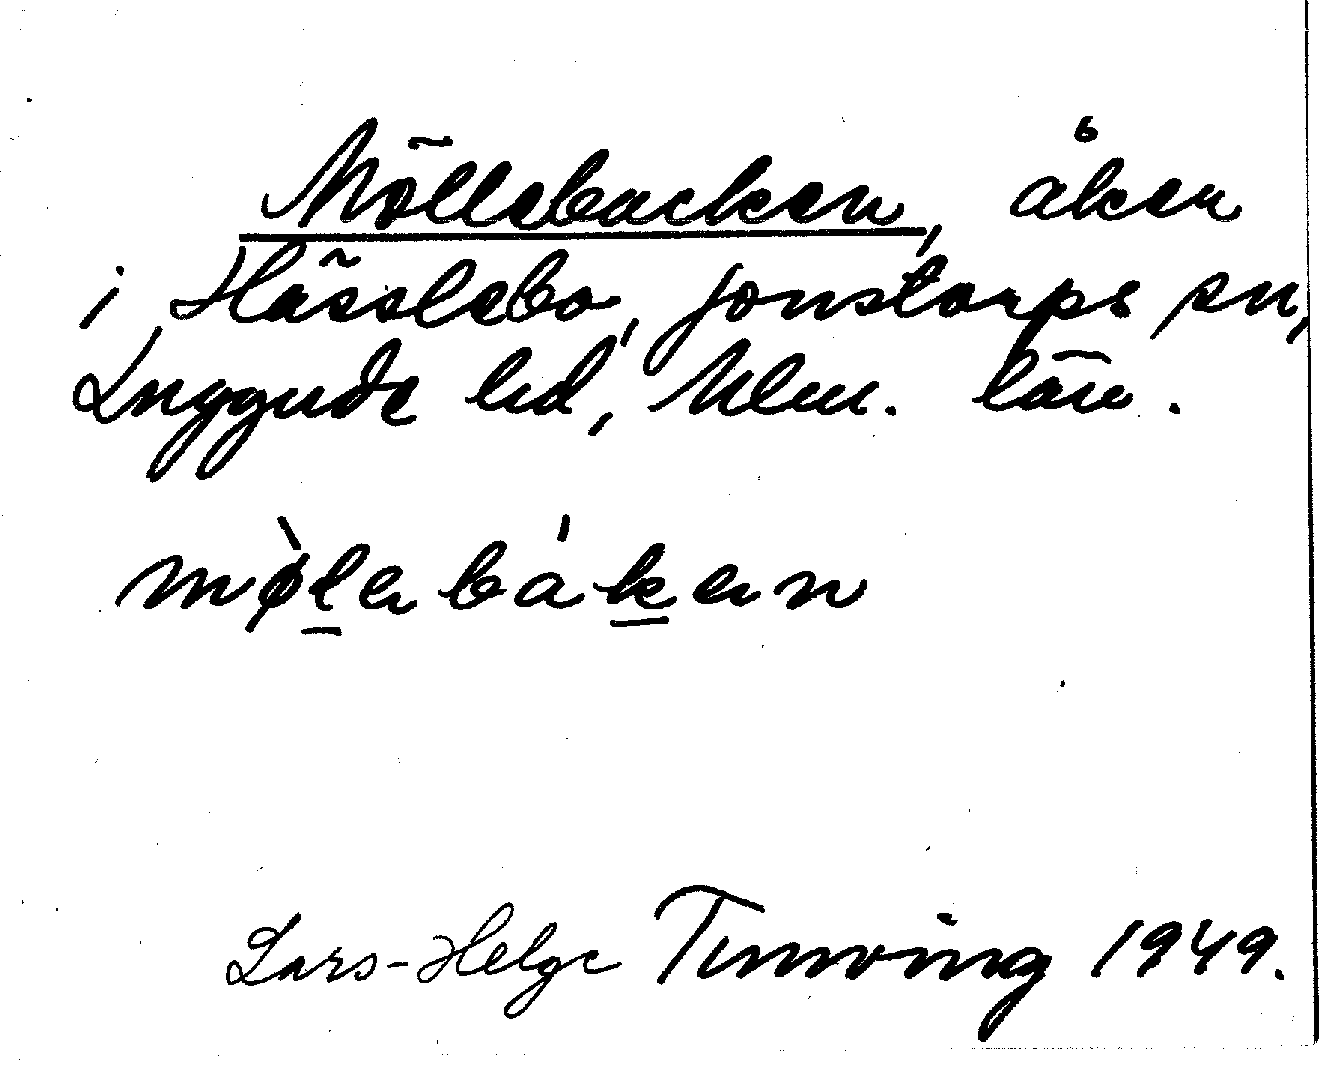 Möllebacken, åker
i Hässlebo, Jonstorps sn,
Luggude hd, Mlm. län.
mø̀lɘbákɘn
Lars-Helge Tunving 1949.